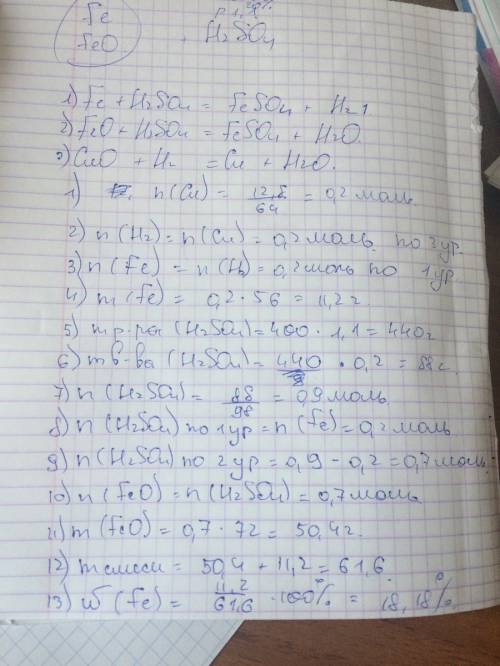 Fe
FeO , H2SO4
1) Fe + H2SO4 = FeSO4 + H2↑
2) FeO + H2SO4 = FeSO4 + H2O.
3) CuO + H2 = Cu + H2O.
1) n (Cu) = 12,8/64 = 0,2 моль
2) n (H2) = n (Cu) = 0,2 моль по 2 ур.
3) n (Fe) = n (H2) = 0,2 моль по 1 ур.
4) m (Fe) = 0,2 · 56 = 11,2 г.
5) m р-ра (H2SO4) = 400 · 1,1 = 440 г
6) m в-ва (H2SO4) = 440 · 0,2 = 88 г.
7) n (H2SO4) = 88/98 = 0,9 моль
8) n (H2SO4) по 1 ур = n (Fe) = 0,2 моль
9) n (H2SO4) по 2 ур = 0,9 - 0,2 = 0,7 моль
10) n (FeO) = n (H2SO4) = 0,7 моль
11) m (FeO) = 0,7 · 72 = 50,4 г.
12) m смеси = 50,4 + 11,2 = 61,6.
13) w (Fe) = 11,2/61,6 · 100% = 18,18%